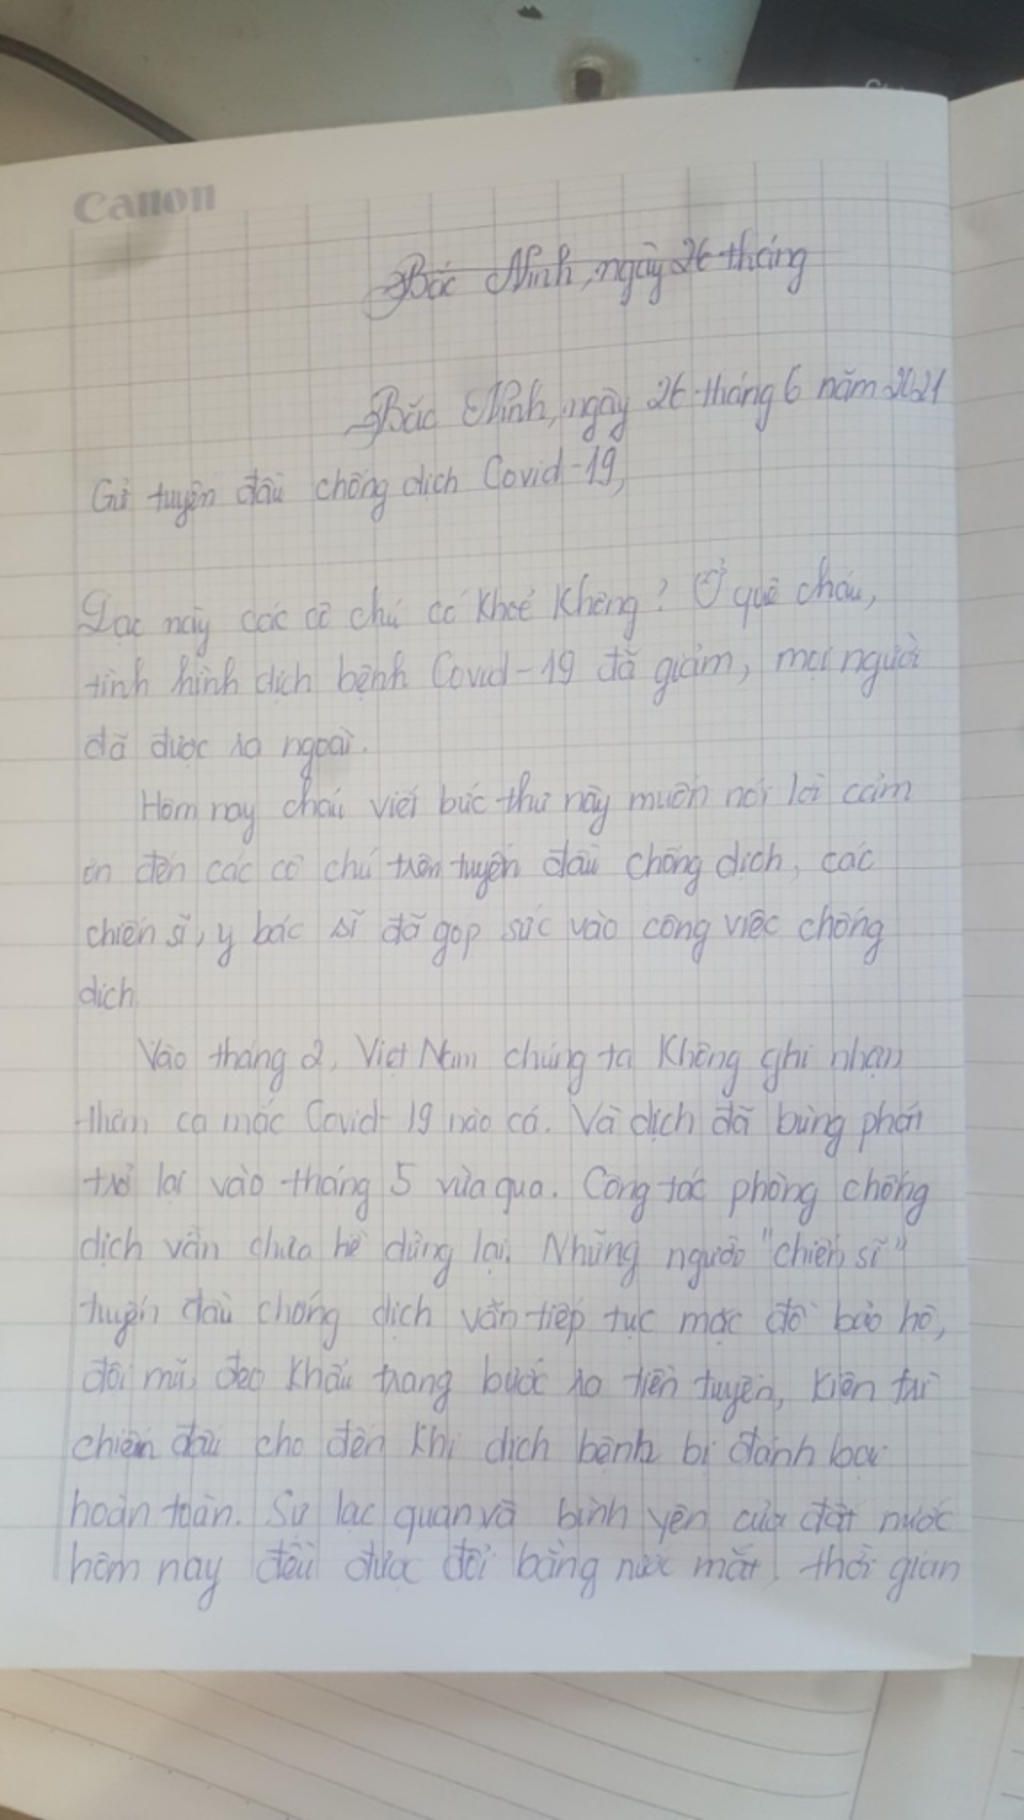 Canon
Bắc Ninh, ngày 26 tháng
Bắc Ninh, ngày 26 tháng 6 năm 2021
Gửi tuyến đầu chống dịch Covid-19,
Dạc này các cô chú có khoẻ không? Ở quê cháu,
tình hình dịch bệnh Covid-19 đã giảm, mọi người
đã được ra ngoài.
Hôm nay cháu viết bức thư này muốn nói lời cảm
ơn đến các cô chú trên tuyến đầu chống dịch, các
chiến sĩ, y bác sĩ đã góp sức vào công việc chống
dịch.
Vào tháng 2, Việt Nam chúng ta không ghi nhận
thêm ca mắc Covid-19 nào cả. Và dịch đã bùng phát
trở lại vào tháng 5 vừa qua. Công tác phòng chống
dịch vẫn chưa hề dừng lại. Những người "chiến sĩ"
tuyến đầu chống dịch vẫn tiếp tục mặc đồ bảo hộ,
đội mũ, đeo khẩu trang bước ra tiền tuyến, kiên trì
chiến đấu cho đến khi dịch bệnh bị đánh bại
hoàn toàn. Sự lạc quan và bình yên của đất nước
hôm nay đều được đổi bằng nước mắt, thời gian